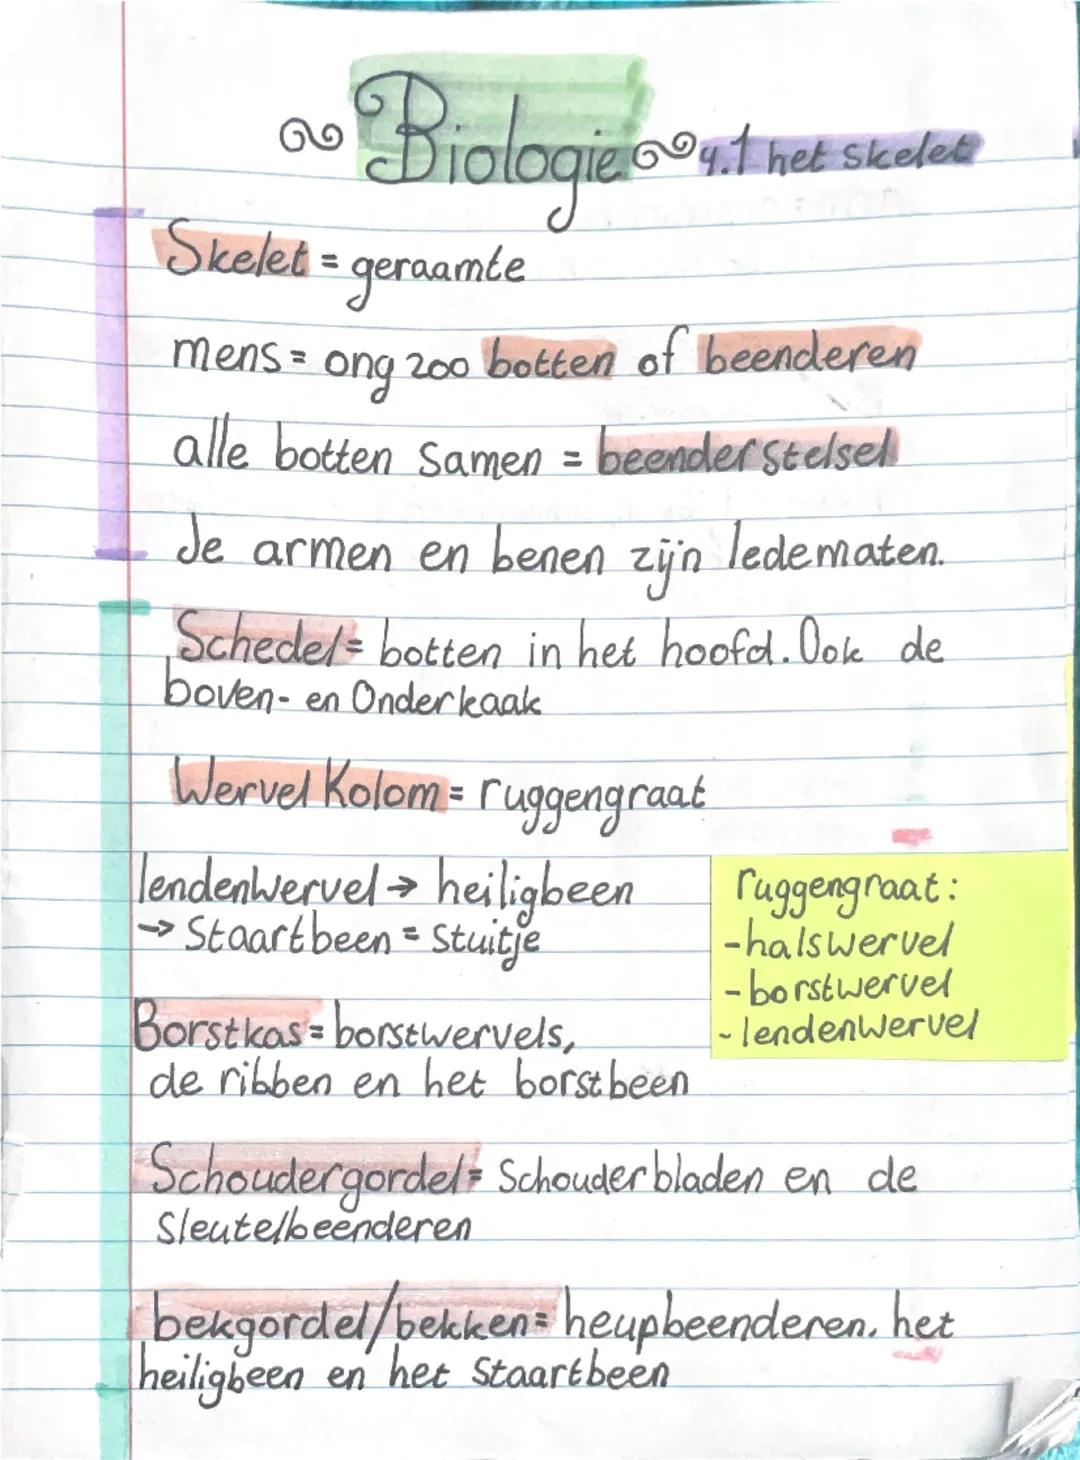 Biologie 4.1 het skelet
Skelet = geraamte
mens = ong 200 botten of beenderen
alle botten samen = beenderstelsel
Je armen en benen zijn ledematen.
Schedel = botten in het hoofd. Ook de
boven- en Onderkaak
Wervel Kolom = ruggengraat
lendenwervel → heiligbeen
→ Staartbeen = Stuitje
ruggengraat:
- halswervel
- borstwervel
- lendenwervel
Borstkas = borstwervels,
de ribben en het borstbeen
Schoudergordel = Schouderbladen en de
Sleutelbeenderen
bekgordel/bekken = heupbeenderen, het
heiligbeen en het Staartbeen